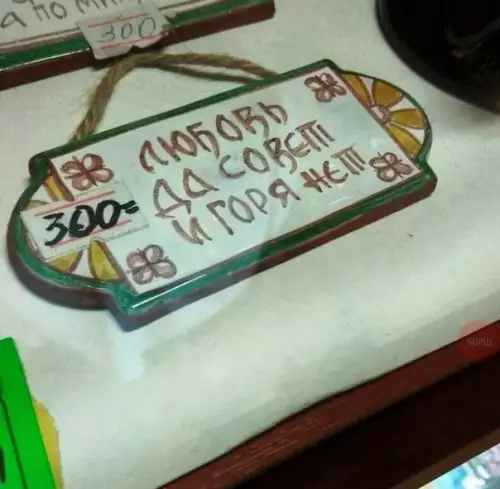 а по ми
300
ЛЮБОВЬ
ДА СОВЕТ
И ГОРЯ НЕТ
300=